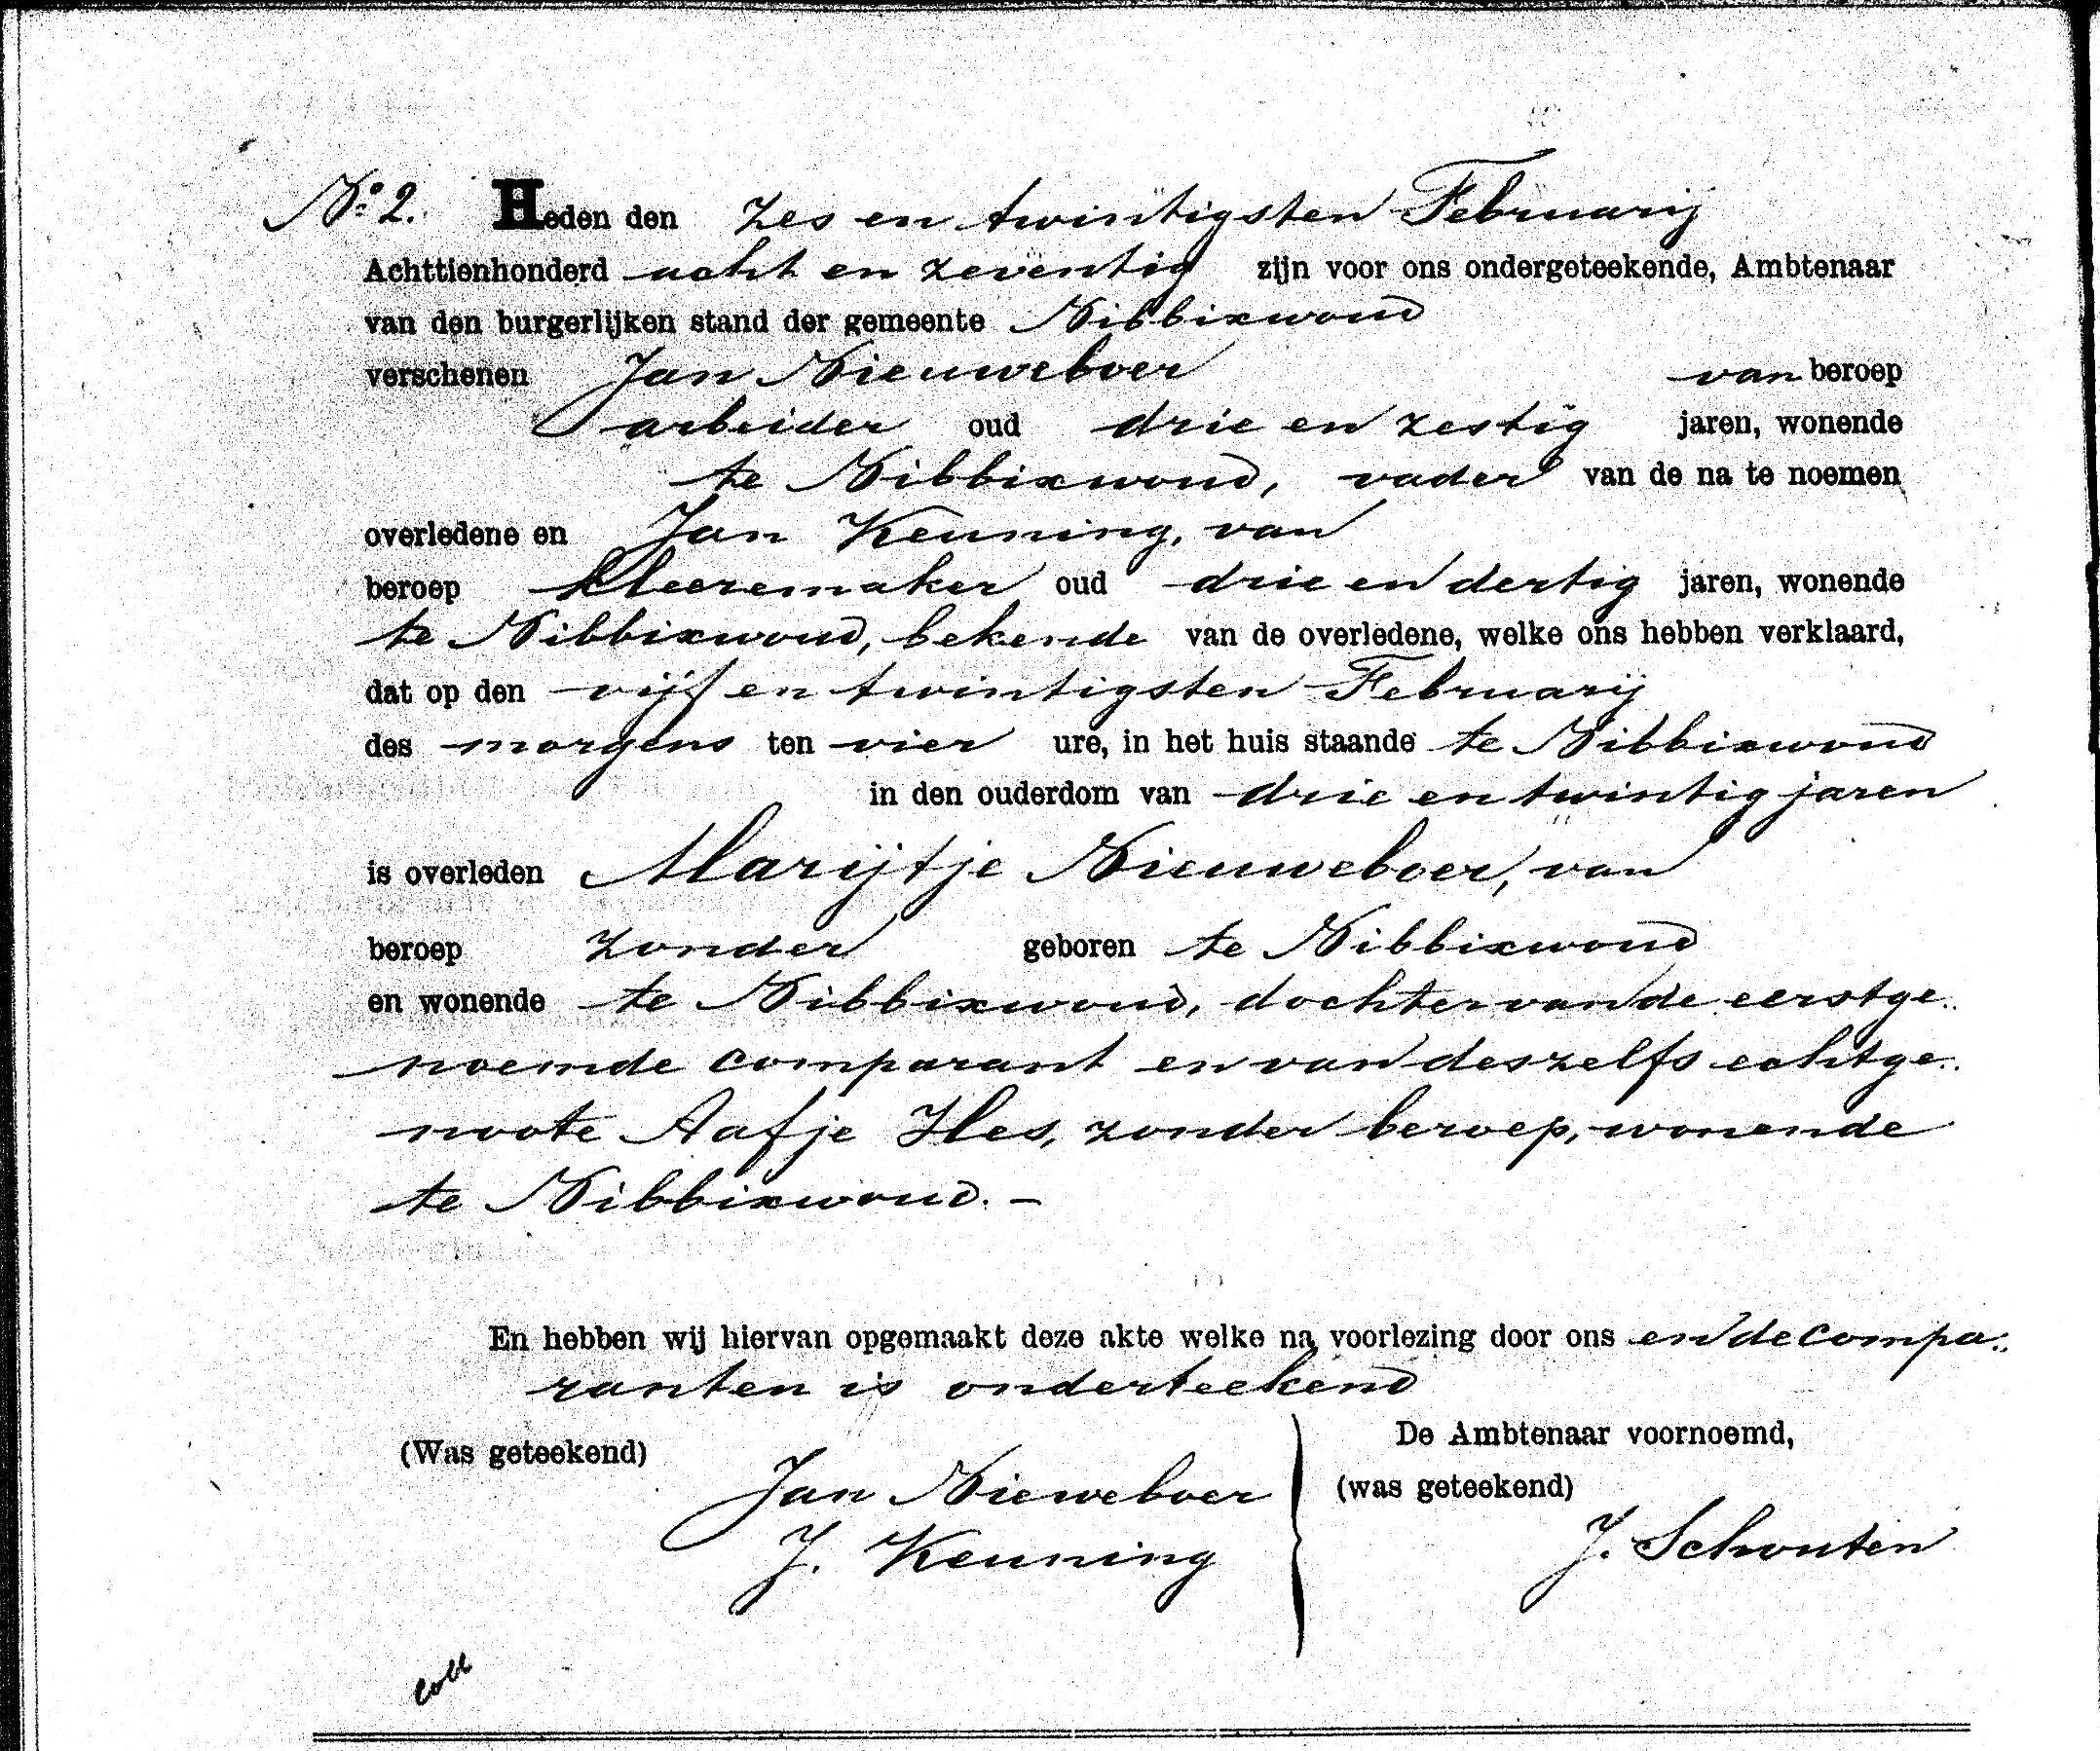 No 2. Heden den zes en twintigsten Februarij
Achttienhonderd acht en zeventig zijn voor ons ondergeteekende, Ambtenaar
van den burgerlijken stand der gemeente Nibbixwoud
verschenen Jan Nieuweboer van beroep
arbeider oud drie en zestig jaren, wonende
te Nibbixwoud, vader van de na te noemen
overledene en Jan Keuning, van
beroep kleeremaker oud drie en dertig jaren, wonende
te Nibbixwoud, bekende van de overledene, welke ons hebben verklaard,
dat op den vijf en twintigsten Februarij
des morgens ten vier ure, in het huis staande te Nibbixwoud
in den ouderdom van drie en twintig jaren
is overleden Marijtje Nieuweboer, van
beroep zonder geboren te Nibbixwoud
en wonende te Nibbixwoud, dochter van de eerstge..
noemde comparant en van deszelfs echtge..
noote Aafje Iles, zonder beroep, wonende
te Nibbixwoud. -
En hebben wij hiervan opgemaakt deze akte welke na voorlezing door ons en de compa..
ranten is onderteekend
De Ambtenaar voornoemd,
(Was geteekend) Jan Nieweboer (was geteekend)
J. Keuning J. Schouten
coll